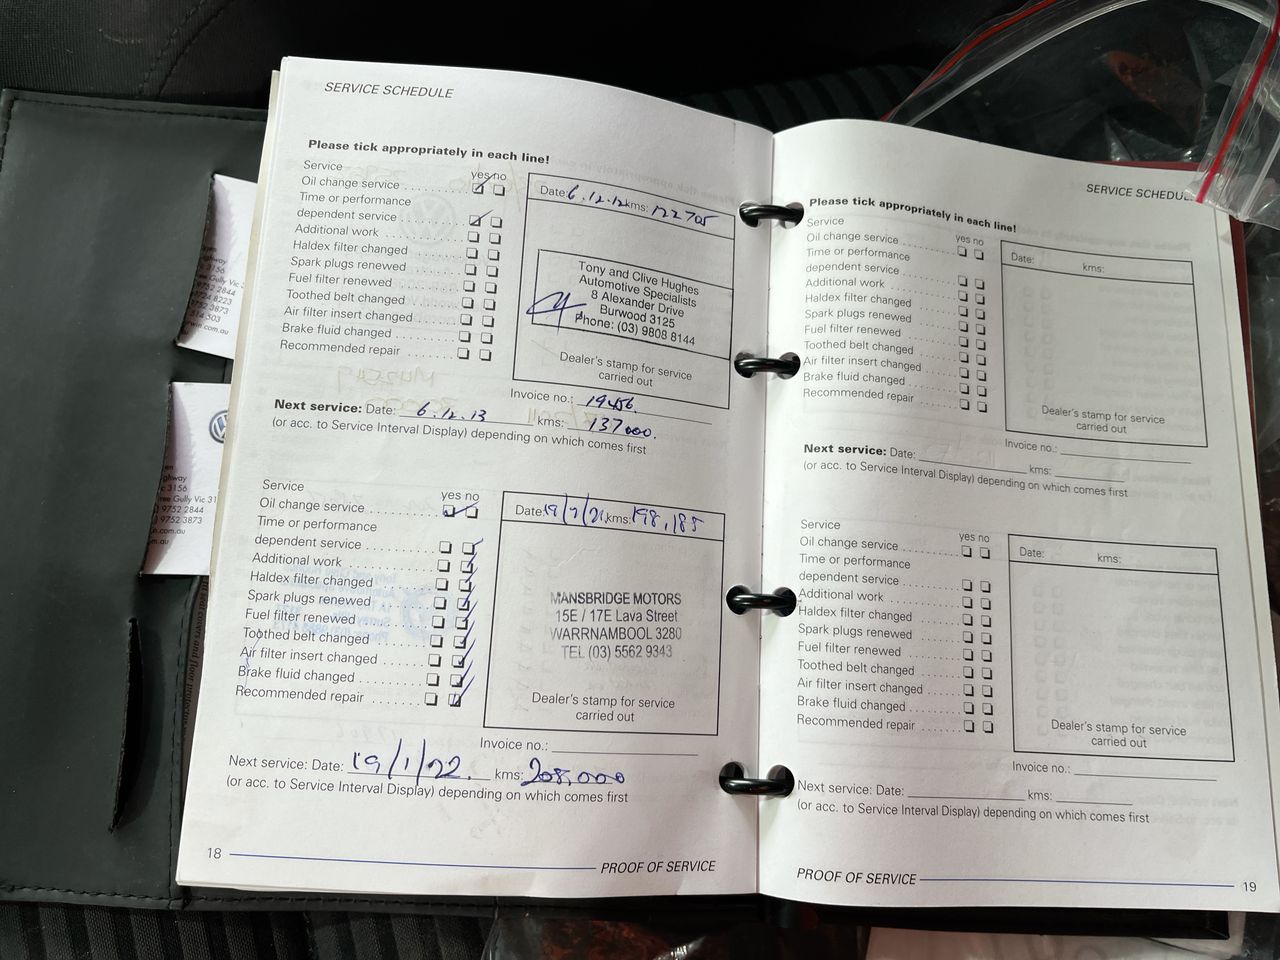 SERVICE SCHEDULE
Please tick appropriately in each line!
Service yes no
Oil change service ........
Time or performance
dependent service ........
Additional work ........
Haldex filter changed ........
Spark plugs renewed ........
Fuel filter renewed ........
Toothed belt changed ........
Air filter insert changed ........
Brake fluid changed ........
Recommended repair ........
Date: 6.12.12 kms: 122705
Tony and Clive Hughes
Automotive Specialists
8 Alexander Drive
Burwood 3125
Phone: (03) 9808 8144
Dealer's stamp for service
carried out
Invoice no.: 19456
Next service: Date: 6.12.13 kms: 137000.
(or acc. to Service Interval Display) depending on which comes first
Service yes no
Oil change service ........
Time or performance
dependent service ........
Additional work ........
Haldex filter changed ........
Spark plugs renewed ........
Fuel filter renewed ........
Toothed belt changed ........
Air filter insert changed ........
Brake fluid changed ........
Recommended repair ........
Date: 19/7/21 kms: 198,185
MANSBRIDGE MOTORS
15E / 17E Lava Street
WARRNAMBOOL 3280
TEL (03) 5562 9343
Dealer's stamp for service
carried out
Invoice no.:
Next service: Date: 19/1/22. kms: 208,000
(or acc. to Service Interval Display) depending on which comes first
18 PROOF OF SERVICE
SERVICE SCHEDULE
Please tick appropriately in each line!
Service yes no
Oil change service ........
Time or performance
dependent service ........
Additional work ........
Haldex filter changed ........
Spark plugs renewed ........
Fuel filter renewed ........
Toothed belt changed ........
Air filter insert changed ........
Brake fluid changed ........
Recommended repair ........
Date: kms:
Dealer's stamp for service
carried out
Invoice no.:
Next service: Date: kms:
(or acc. to Service Interval Display) depending on which comes first
Service yes no
Oil change service ........
Time or performance
dependent service ........
Additional work ........
Haldex filter changed ........
Spark plugs renewed ........
Fuel filter renewed ........
Toothed belt changed ........
Air filter insert changed ........
Brake fluid changed ........
Recommended repair ........
Date: kms:
Dealer's stamp for service
carried out
Invoice no.:
Next service: Date: kms:
(or acc. to Service Interval Display) depending on which comes first
PROOF OF SERVICE 19